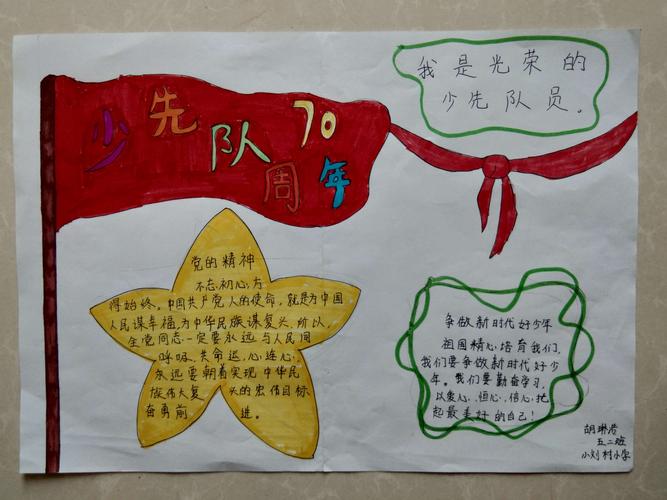 少先队70
周年
我是光荣的
少先队员。
党的精神
不忘初心,方
得始终。中国共产党人的使命,就是为中国
人民谋幸福,为中华民族谋复头.所以,
全党同志一定要永远与人民同
呼吸、共命运、心连心,
永远要朝着实现中华民
族伟大复 头的宏伟目标
奋勇前 进。
争做新时代好少年
祖国精心培育我们,
我们要争做新时代好少
年。我们要勤奋学习,
以爱心、恒心、信心,把
起最美好的自己!
胡琳
五二班
小刘村小学